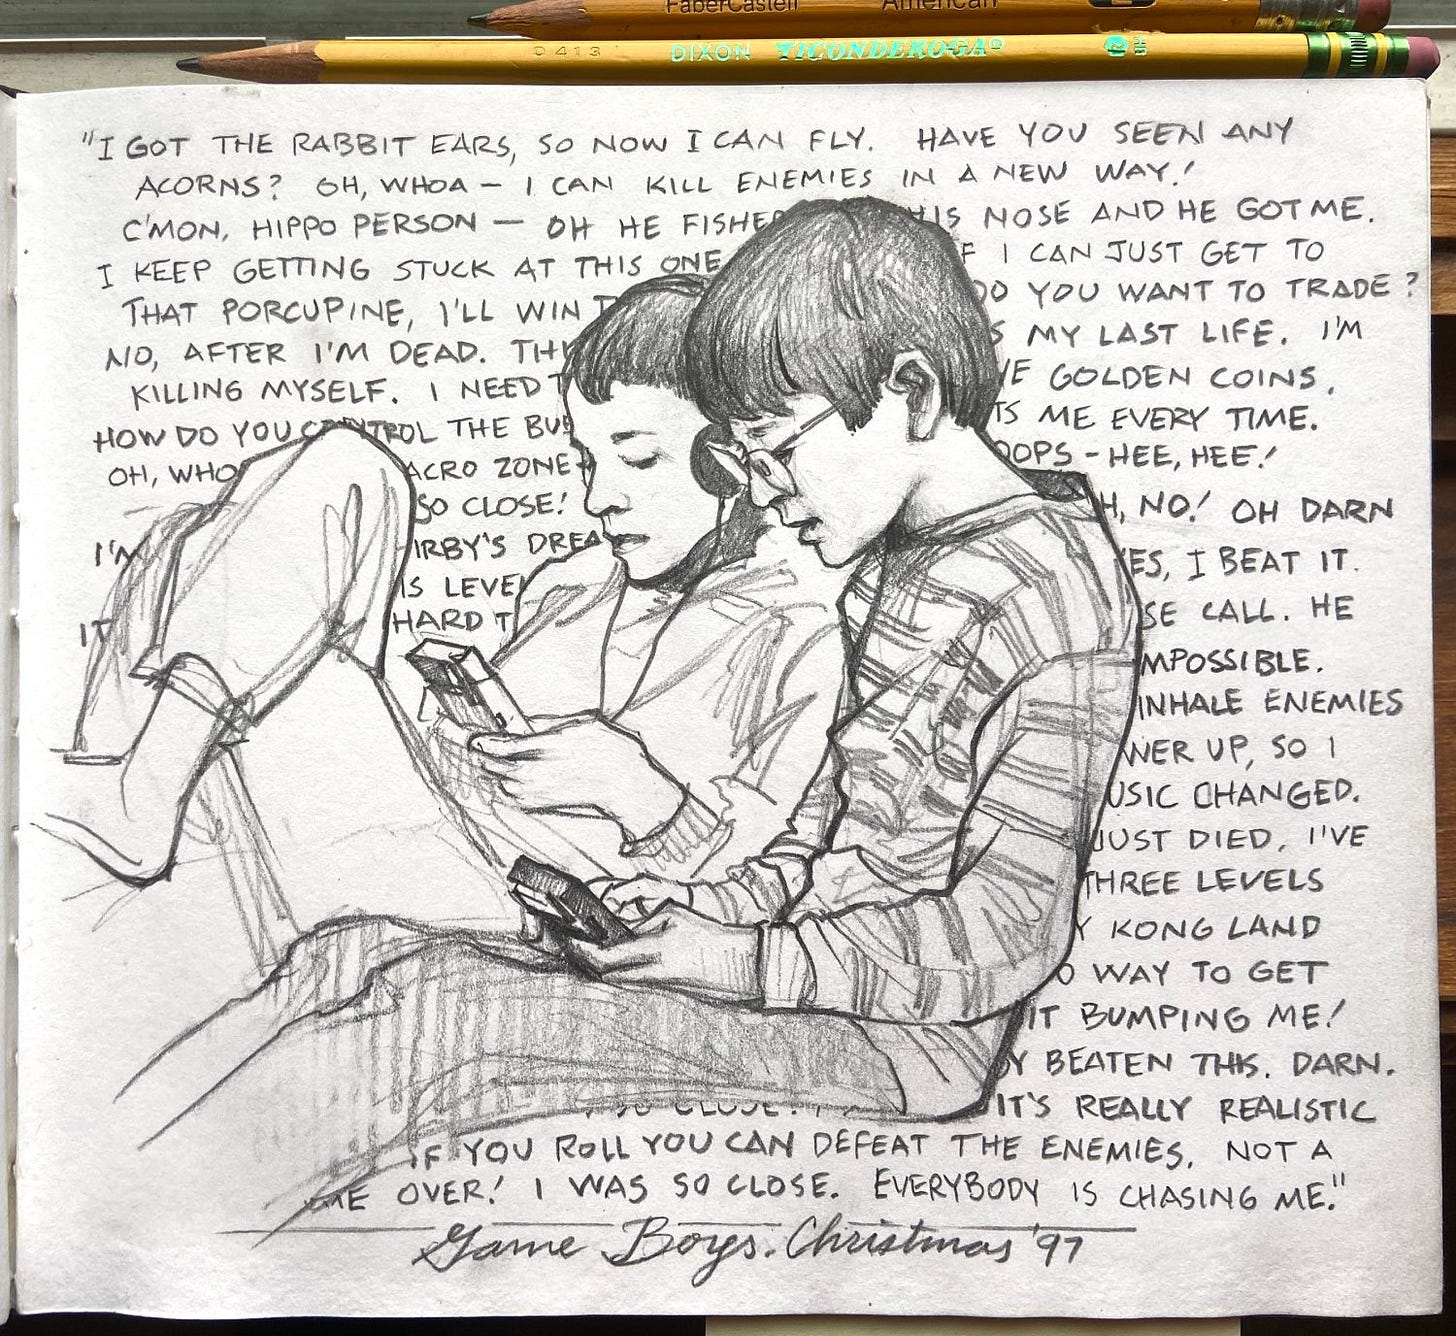 FaberCastell American
0413 DIXON TICONDEROGA® 2 HB
"I GOT THE RABBIT EARS, SO NOW I CAN FLY. HAVE YOU SEEN ANY
ACORNS? OH, WHOA – I CAN KILL ENEMIES IN A NEW WAY!
C'MON, HIPPO PERSON – OH HE FISHE HIS NOSE AND HE GOT ME.
I KEEP GETTING STUCK AT THIS ONE F I CAN JUST GET TO
THAT PORCUPINE, I'LL WIN DO YOU WANT TO TRADE?
NO, AFTER I'M DEAD. THI S MY LAST LIFE. I'M
KILLING MYSELF. I NEED VE GOLDEN COINS.
HOW DO YOU CONTROL THE BU TS ME EVERY TIME.
OH, WHO ACRO ZONE OOPS – HEE, HEE!
SO CLOSE! H, NO! OH DARN
I'M IRBY'S DREA ES, I BEAT IT.
IS LEVEL SE CALL. HE
IT HARD T MPOSSIBLE.
INHALE ENEMIES
WER UP, SO I
USIC CHANGED.
JUST DIED. I'VE
THREE LEVELS
Y KONG LAND
O WAY TO GET
IT BUMPING ME!
Y BEATEN THIS. DARN.
IT'S REALLY REALISTIC
IF YOU ROLL YOU CAN DEFEAT THE ENEMIES. NOT A
ME OVER! I WAS SO CLOSE. EVERYBODY IS CHASING ME."
Game Boys. Christmas '97